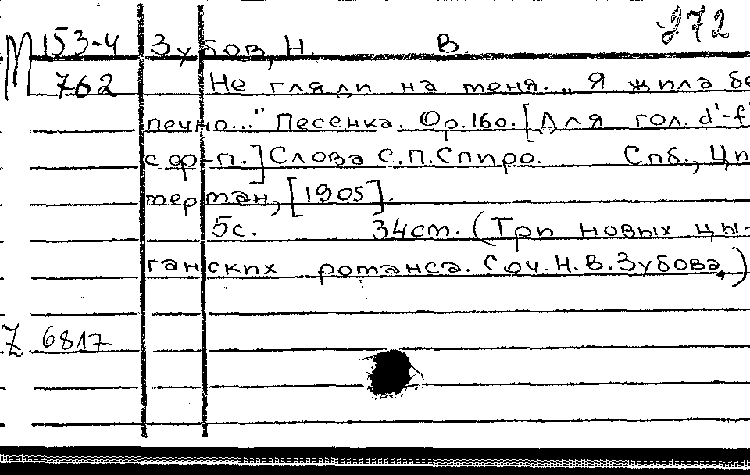 272
М 153-4 Зубов, Н. В.
762 Не гляди на меня. „Я жила бес
печно..." Песенка. Ор. 160. [Для гол. d'-f'
с ф-п.] Слова С.П.Спиро. Спб., Цим
мерман, [1905].
5с. 34см. (Три новых цы-
ганских романса. Соч. Н.В.Зубова.)
Z 6817